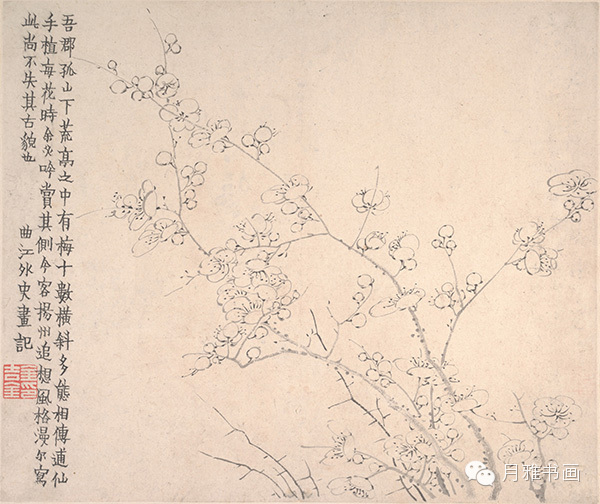 吾郡孤山下荒亭之中有梅十數橫斜多態相傳逋仙
手植每花時余必吟賞其側今客揚州追想風格漫尔寫
此尚不失其古貌也
曲江外史畫記
月雅书画